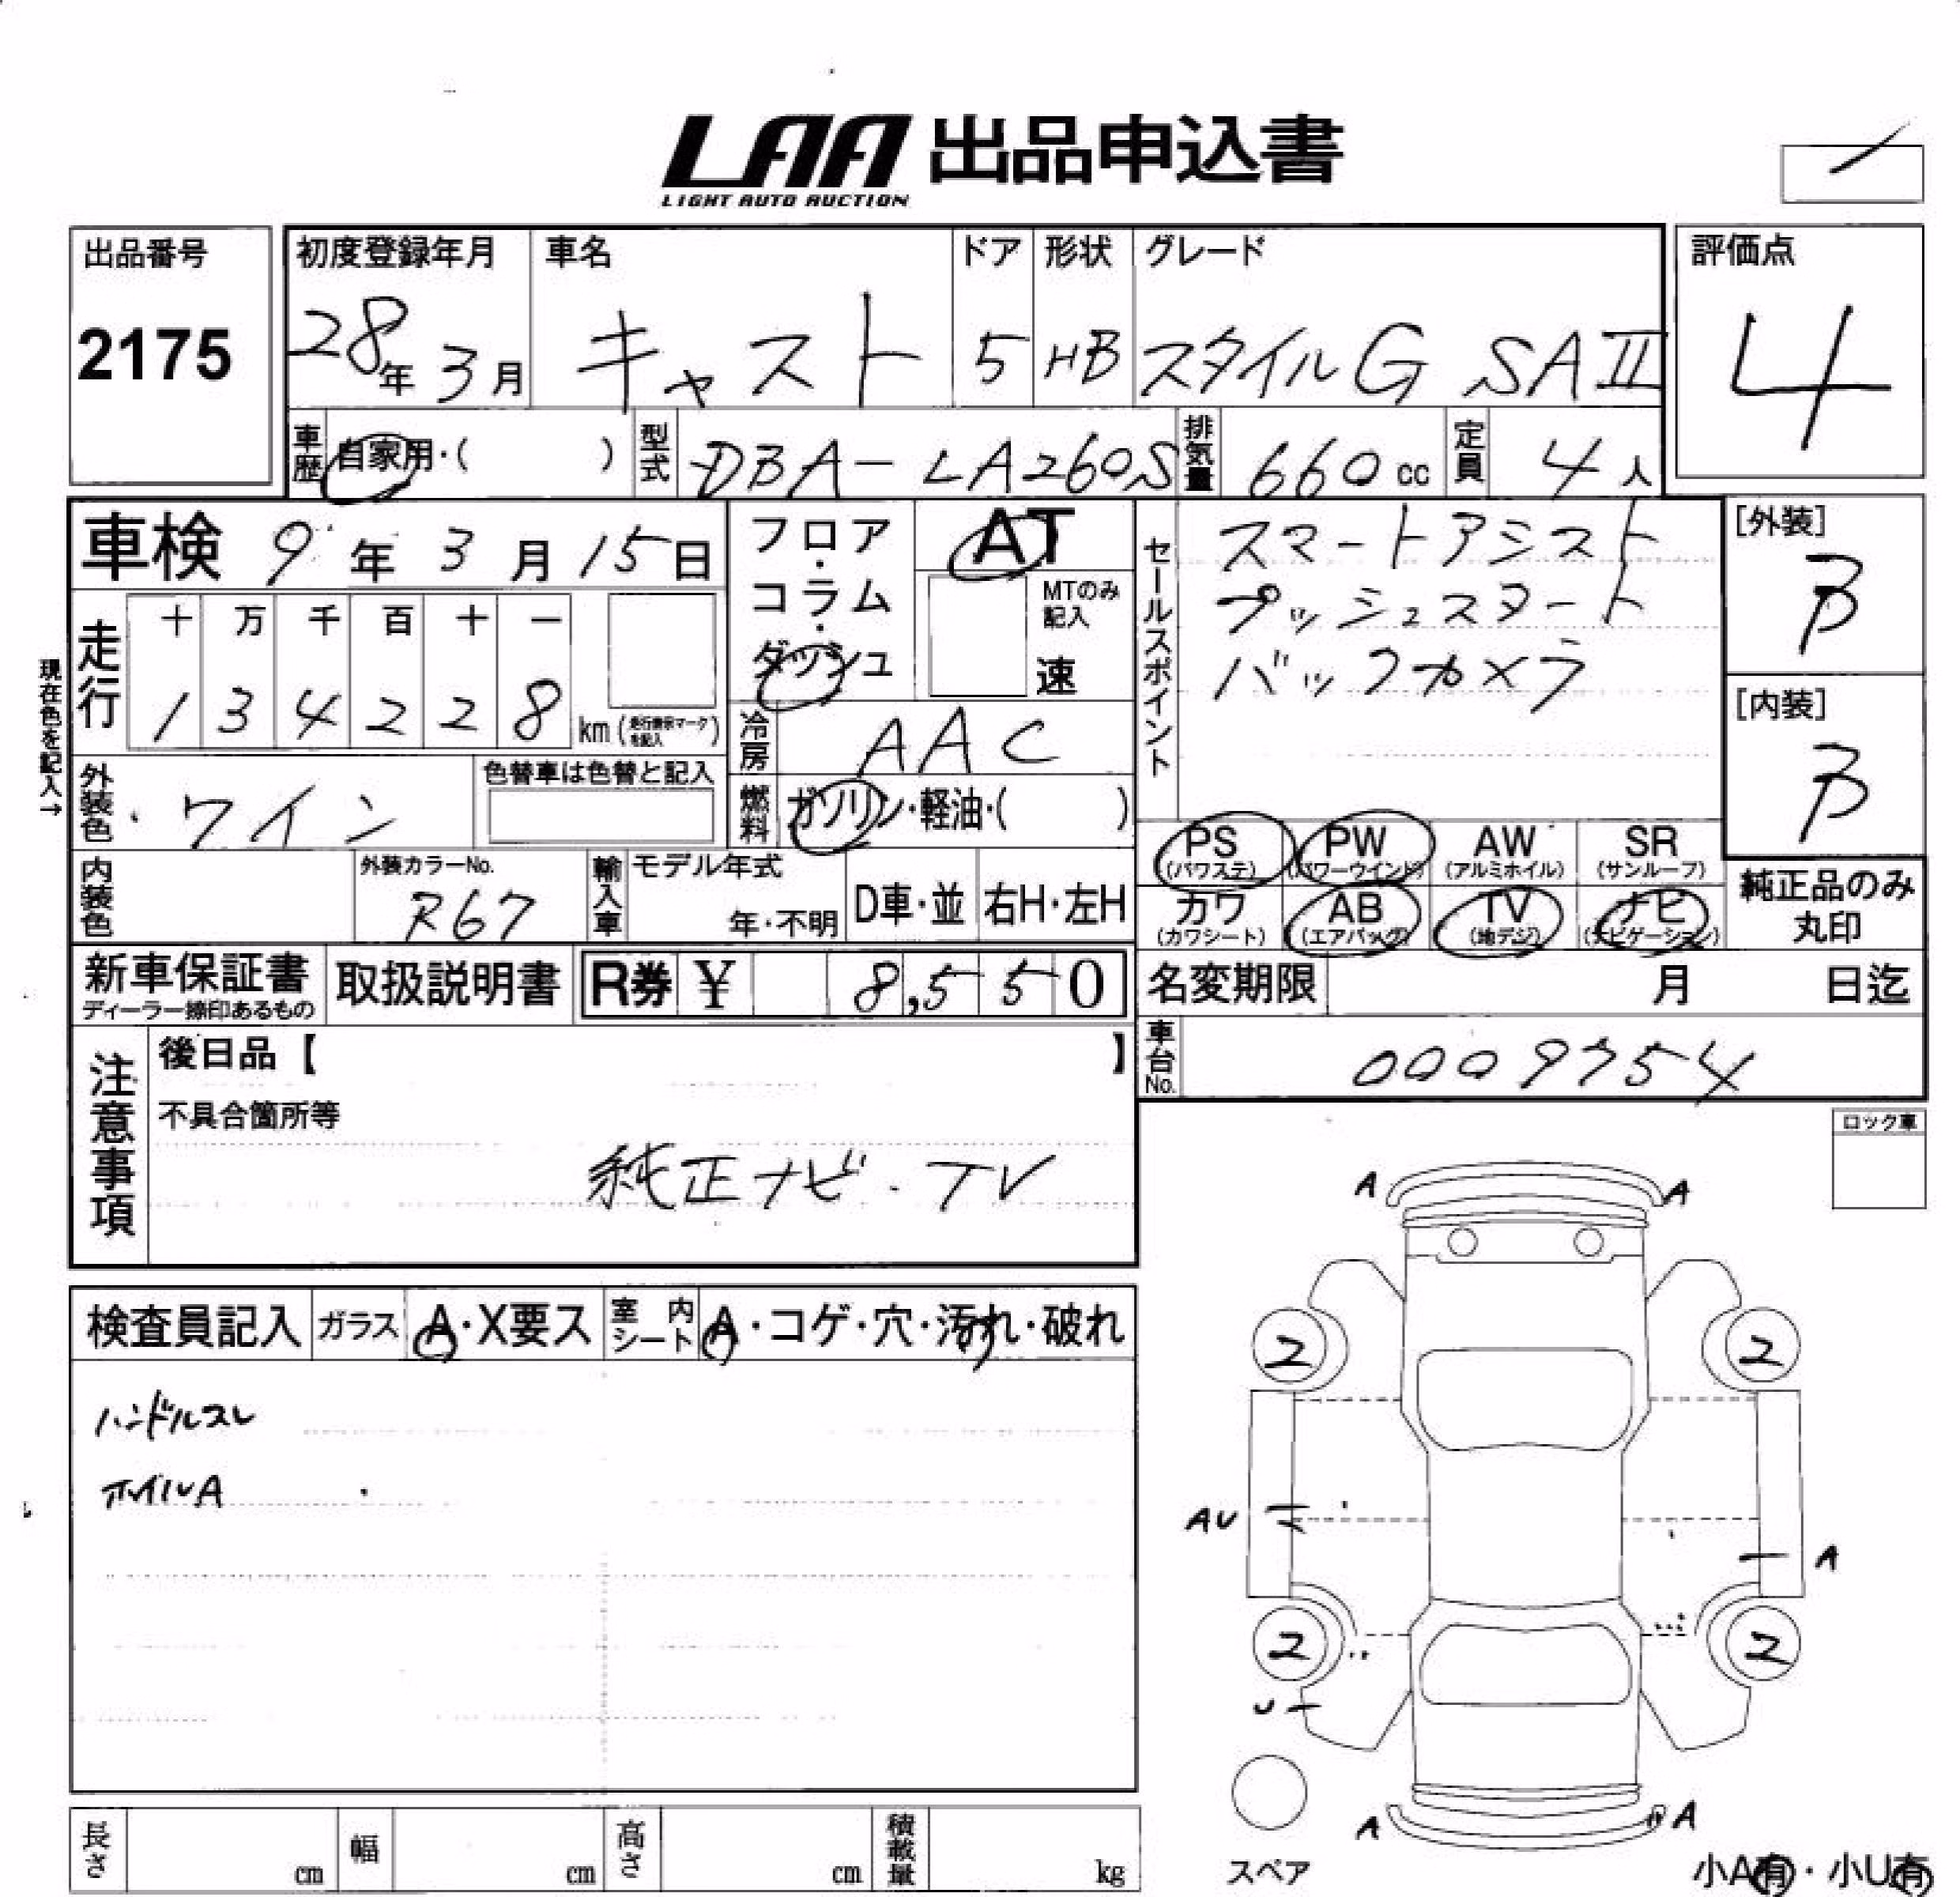 LAA 出品申込書
LIGHT AUTO AUCTION
出品番号
2175
初度登録年月
28年 3月
車名
キャスト
ドア
5
形状
HB
グレード
スタイルG SAII
評価点
4
車歴
自家用・( )
型式
DBA-LA260S
排気量
660cc
定員
4人
車検 9年 3月 15日
フロア・コラム・ダッシュ
AT
MTのみ記入
速
セールスポイント
スマートアシスト
プッシュスタート
バックカメラ
[外装]
B
[内装]
B
現在色を記入→
走行
十 万 千 百 十 一
1 3 4 2 2 8 km
冷房
AAC
外装色
ワイン
色替車は色替と記入
燃料
ガソリン・軽油・( )
PS (パワステ)
PW (パワーウインド)
AW (アルミホイル)
SR (サンルーフ)
カワ (カワシート)
AB (エアバッグ)
TV (地デジ)
ナビ (ナビゲーション)
純正品のみ丸印
内装色
外装カラーNo.
R67
輸入車
モデル年式
年・不明
D車・並
右H・左H
新車保証書
ディーラー捺印あるもの
取扱説明書
R券 ¥ 8,550
名変期限 月 日迄
車台No.
0009754
注意事項
後日品【 】
不具合箇所等
純正ナビ.TV
ロック車
検査員記入
ガラス
A・X要ス
室内シート
A・コゲ・穴・汚れ・破れ
ハンドルスレ
ホイルA
A A
2 2
AU
A
2 2
U
A A
スペア
小A有・小U有
長さ cm
幅 cm
高さ cm
積載量 kg